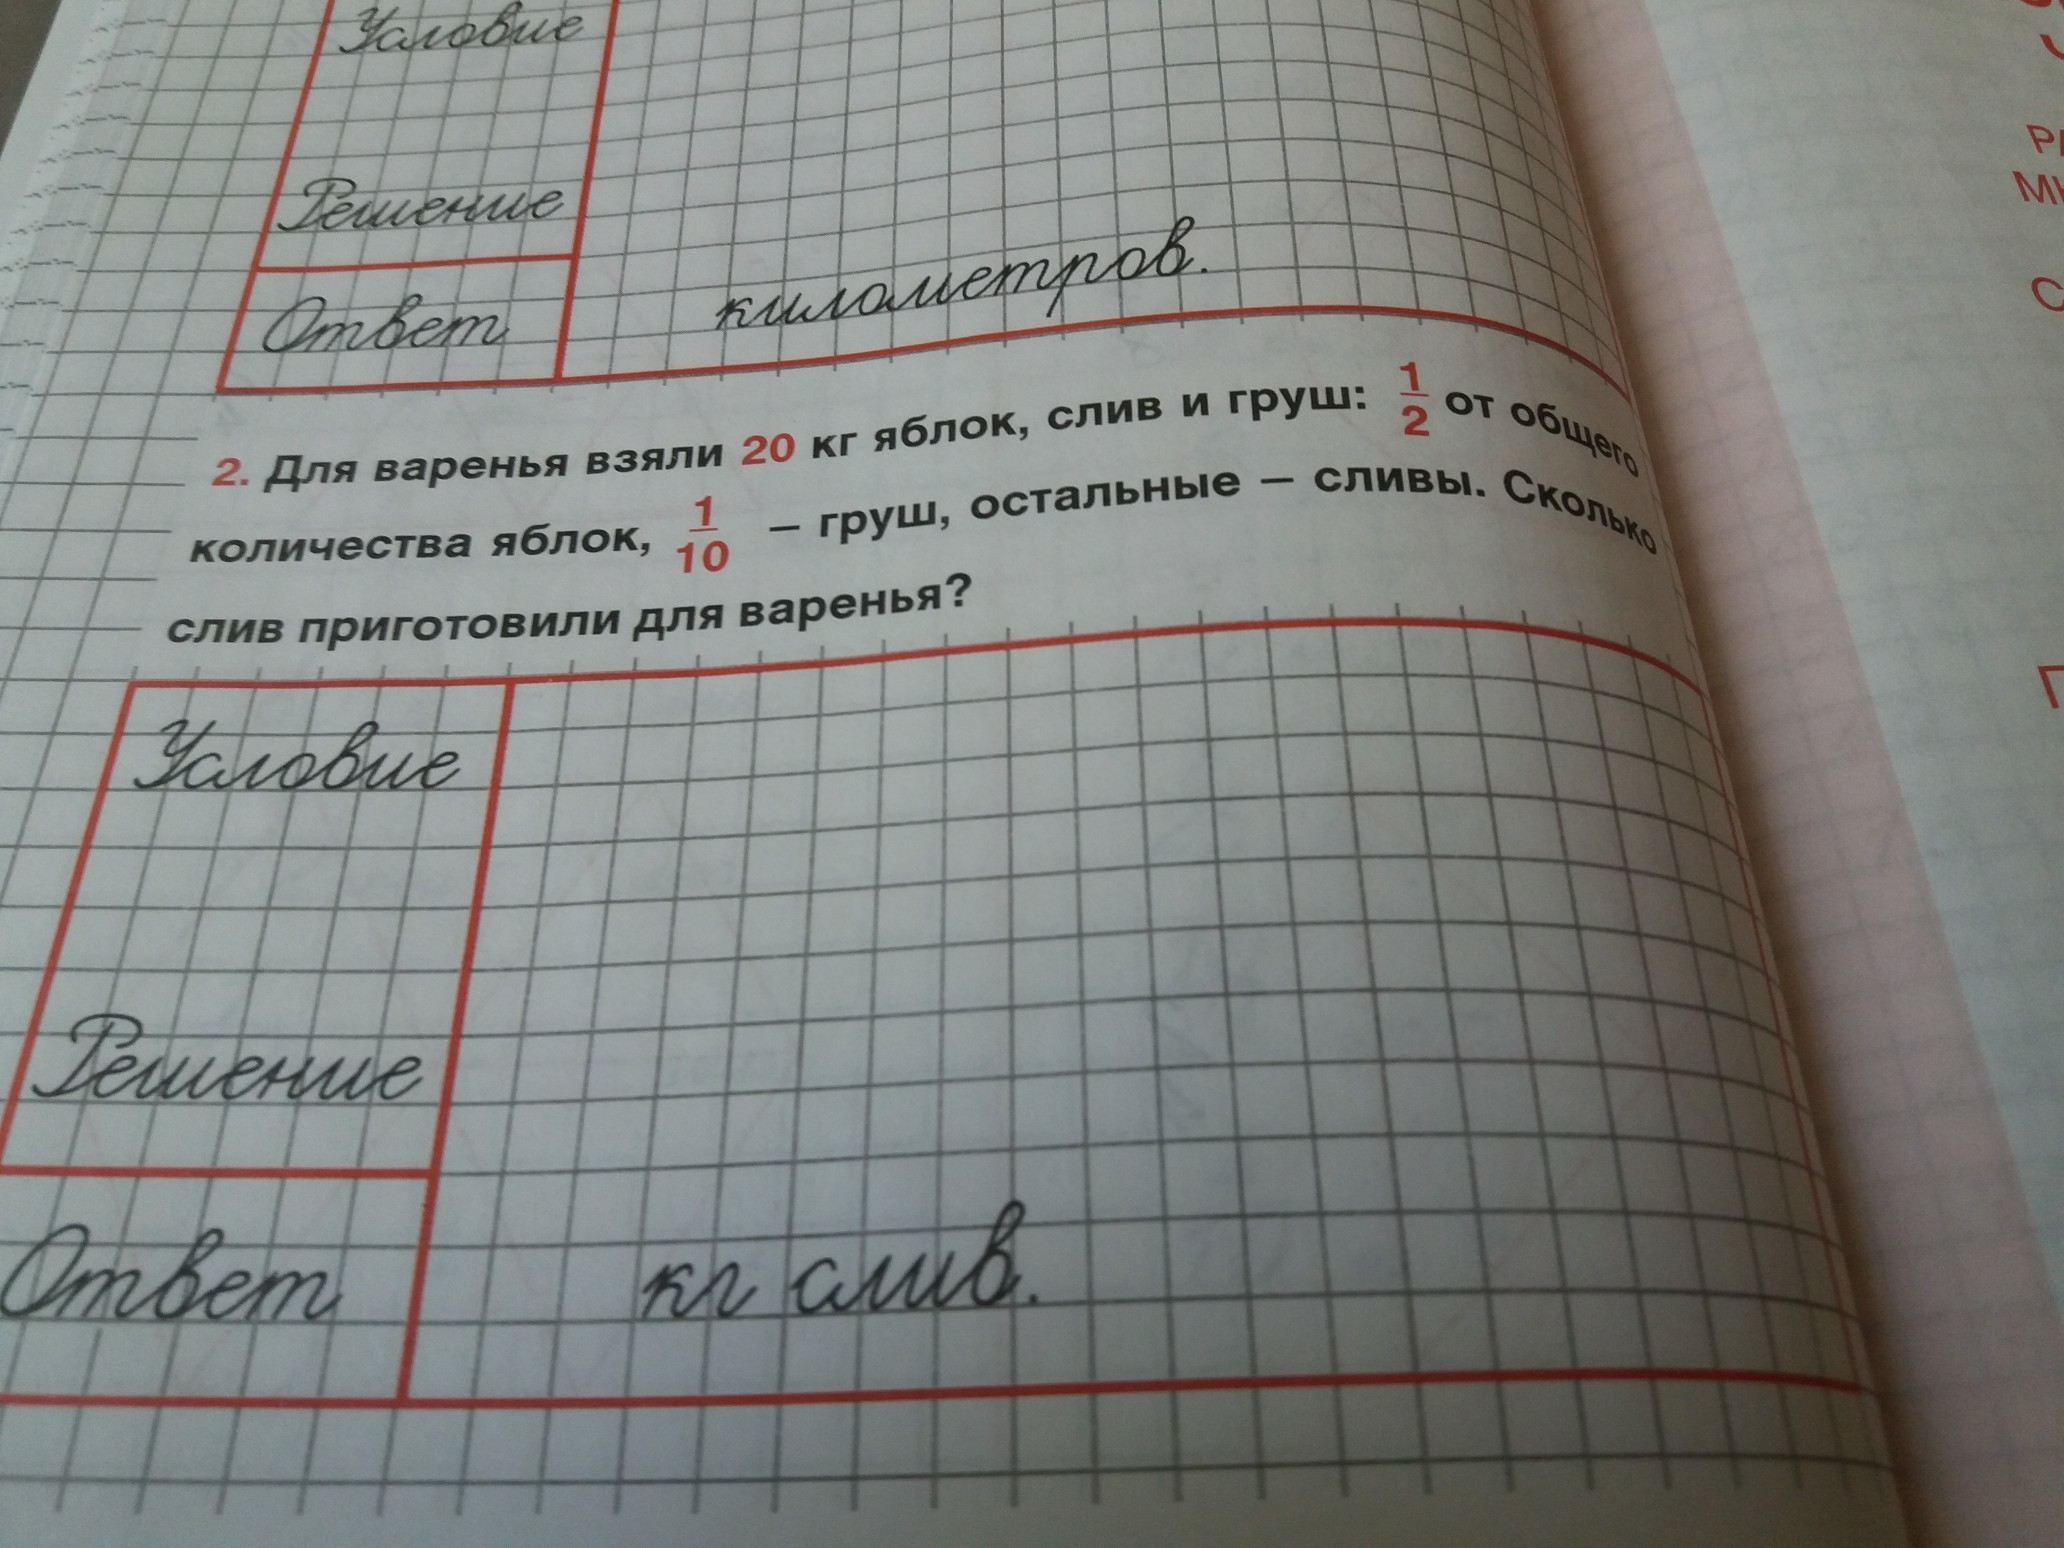 Условие
Решение
Ответ километров.
2. Для варенья взяли 20 кг яблок, слив и груш: 1/2 от общего
количества яблок, 1/10 – груш, остальные – сливы. Сколько
слив приготовили для варенья?
Условие
Решение
Ответ кг слив.